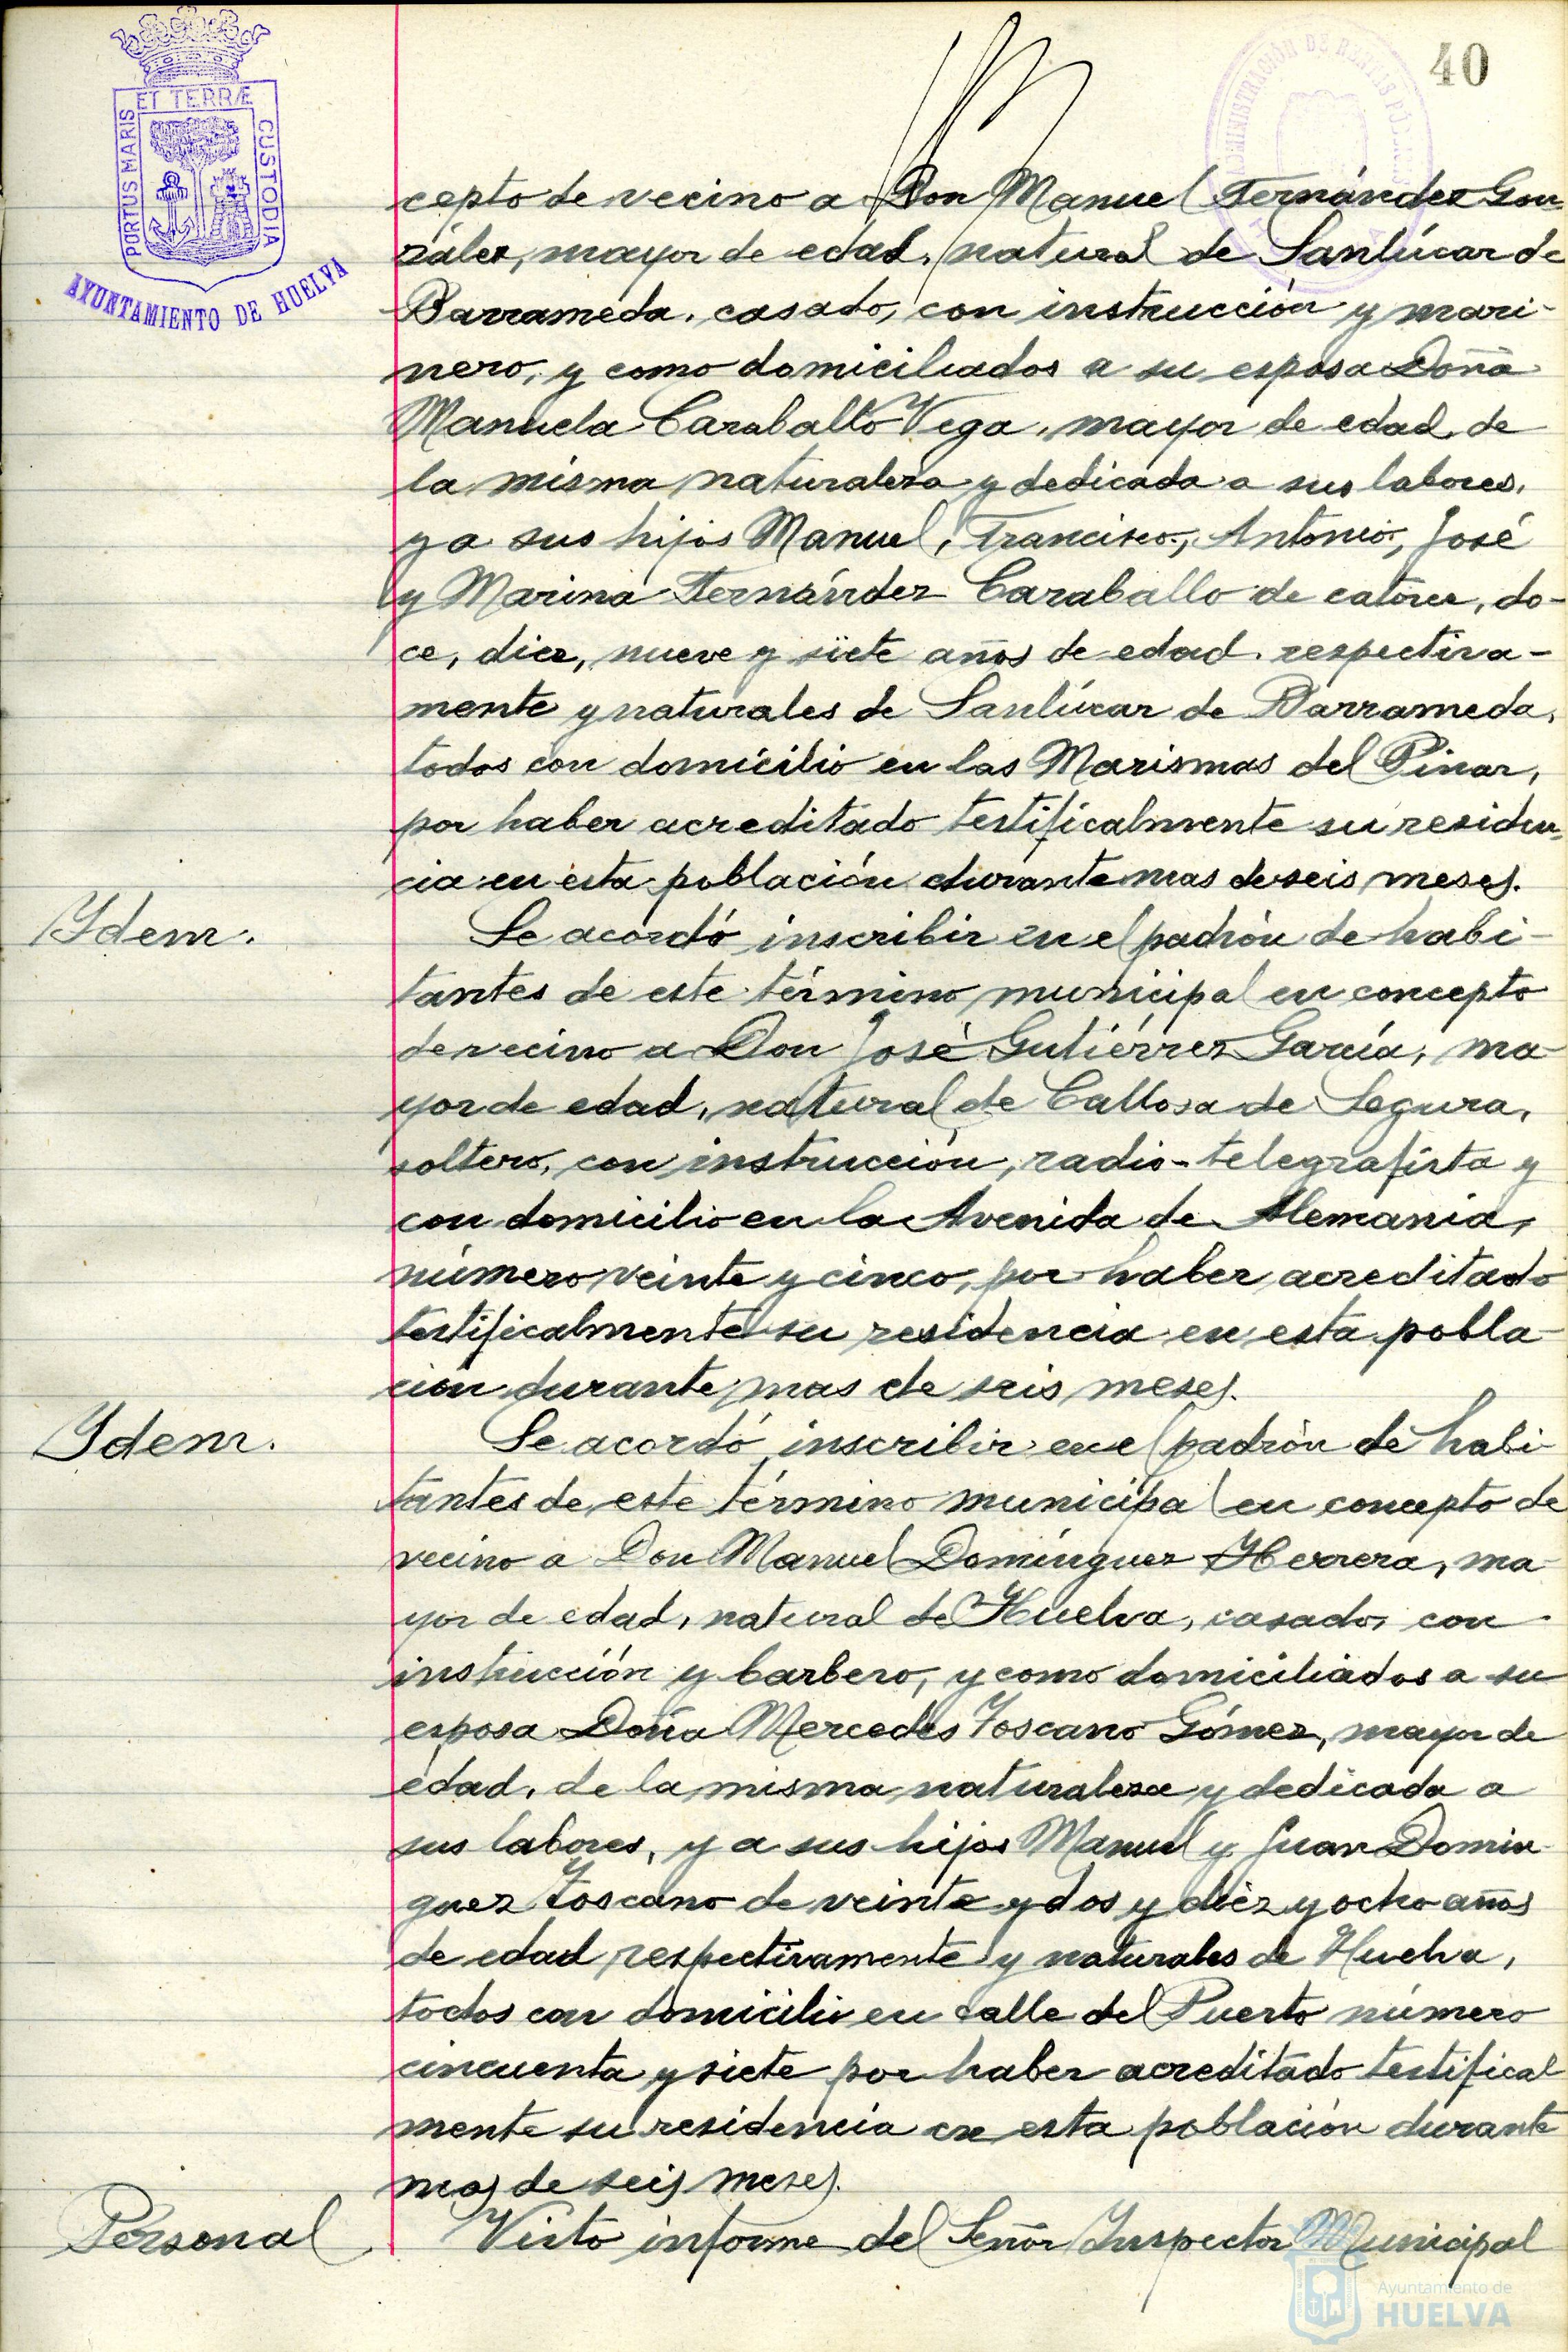 40
ADMINISTRACIÓN DE RENTAS PÚBLICAS
PORTUS MARIS ET TERRÆ CUSTODIA
AYUNTAMIENTO DE HUELVA
cepto de vecino a Don Manuel Fernández Gon-
zález, mayor de edad, natural de Sanlúcar de
Barrameda, casado, con instrucción y mari-
nero, y como domiciliados a su esposa Doña
Manuela Caraballo Vega, mayor de edad, de
la misma naturaleza y dedicada a sus labores,
y a sus hijos Manuel, Francisco, Antonio, José
y Marina Fernández Caraballo de catorce, do-
ce, diez, nueve y siete años de edad respectiva-
mente y naturales de Sanlúcar de Barrameda,
todos con domicilio en las Marismas del Pinar,
por haber acreditado testificalmente su residen-
cia en esta población durante mas de seis meses.
Ydem. Se acordó inscribir en el padrón de habi-
tantes de este término municipal en concepto
de vecino a Don José Gutiérrez García, ma-
yor de edad, natural de Callosa de Segura,
soltero, con instrucción, radio-telegrafista y
con domicilio en la Avenida de Alemania,
número veinte y cinco, por haber acreditado
testificalmente su residencia en esta pobla-
ción durante mas de seis meses.
Ydem. Se acordó inscribir en el padrón de habi-
tantes de este término municipal en concepto de
vecino a Don Manuel Domínguez Herrera, ma-
yor de edad, natural de Huelva, casado, con
instrucción y barbero, y como domiciliados a su
esposa Doña Mercedes Toscano Gómez, mayor de
edad, de la misma naturaleza y dedicada a
sus labores, y a sus hijos Manuel y Juan Domín-
guez Toscano de veinte y dos y diez y ocho años
de edad respectivamente y naturales de Huelva,
todos con domicilio en calle del Puerto número
cincuenta y siete por haber acreditado testifical
mente su residencia en esta población durante
mas de seis meses.
Personal Visto informe del Señor Inspector Municipal
Ayuntamiento de
HUELVA